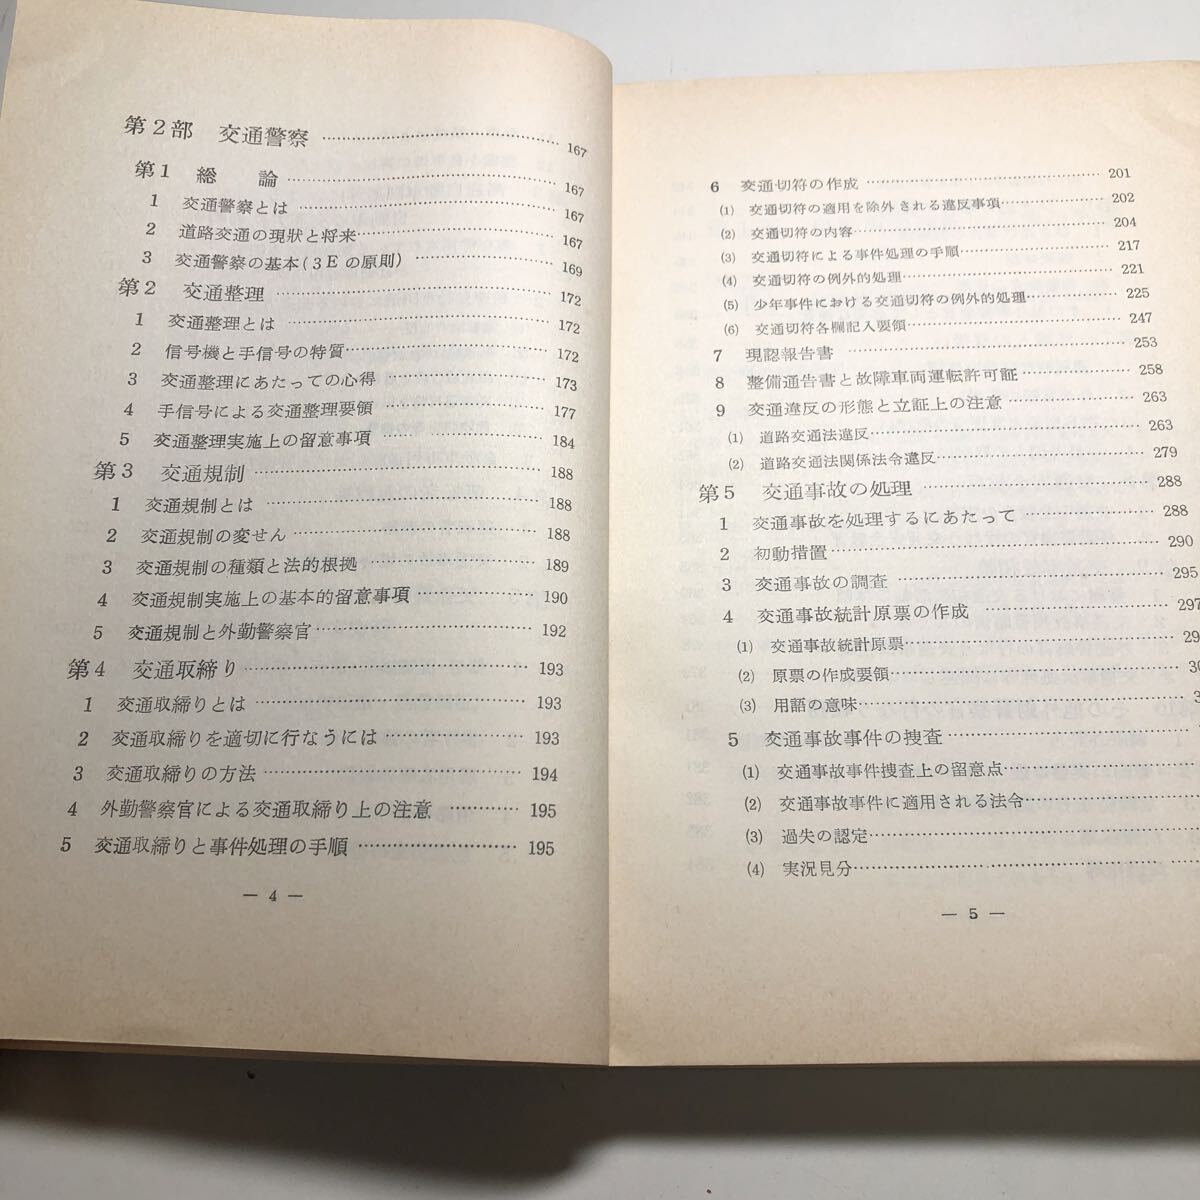 第2部　交通警察 …… 167
第1　総　論 …… 167
1　交通警察とは …… 167
2　道路交通の現状と将来 …… 167
3　交通警察の基本(3Eの原則) …… 169
第2　交通整理 …… 172
1　交通整理とは …… 172
2　信号機と手信号の特質 …… 172
3　交通整理にあたっての心得 …… 173
4　手信号による交通整理要領 …… 177
5　交通整理実施上の留意事項 …… 184
第3　交通規制 …… 188
1　交通規制とは …… 188
2　交通規制の変せん …… 188
3　交通規制の種類と法的根拠 …… 189
4　交通規制実施上の基本的留意事項 …… 190
5　交通規制と外勤警察官 …… 192
第4　交通取締り …… 193
1　交通取締りとは …… 193
2　交通取締りを適切に行なうには …… 193
3　交通取締りの方法 …… 194
4　外勤警察官による交通取締り上の注意 …… 195
5　交通取締りと事件処理の手順 …… 195
― 4 ―
6　交通切符の作成 …… 201
(1)　交通切符の適用を除外される違反事項 …… 202
(2)　交通切符の内容 …… 204
(3)　交通切符による事件処理の手順 …… 217
(4)　交通切符の例外的処理 …… 221
(5)　少年事件における交通切符の例外的処理 …… 225
(6)　交通切符各欄記入要領 …… 247
7　現認報告書 …… 253
8　整備通告書と故障車両運転許可証 …… 258
9　交通違反の形態と立証上の注意 …… 263
(1)　道路交通法違反 …… 263
(2)　道路交通法関係法令違反 …… 279
第5　交通事故の処理 …… 288
1　交通事故を処理するにあたって …… 288
2　初動措置 …… 290
3　交通事故の調査 …… 295
4　交通事故統計原票の作成 …… 297
(1)　交通事故統計原票 …… 29
(2)　原票の作成要領 …… 30
(3)　用語の意味 …… 3
5　交通事故事件の捜査 ……
(1)　交通事故事件捜査上の留意点 ……
(2)　交通事故事件に適用される法令 ……
(3)　過失の認定 ……
(4)　実況見分 ……
― 5 ―